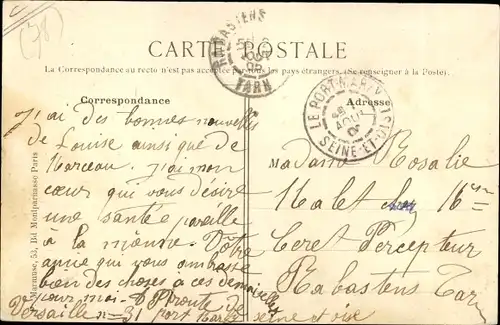 (78)
CARTE POSTALE
La Correspondance au recto n'est pas acceptée par tous les pays étrangers. (Se renseigner à la Poste).
Correspondance
Adresse
RABASTENS
TARN
LE PORT-MARLY
AOUT
SEINE-ET-OISE
Marmuse, 53, Bd Montparnasse Paris
J'ai des bonnes nouvelles
de Louise ainsi que de
Marceau. J'ai mon
cœur qui vous désire
une santé pareille
à la mienne. Votre
amie qui vous embrasse
bien des choses à ces demoiselles
route de
Versaille n=31 port Marly seine et oise
Madame Rosalie
Malet chez
Ceret Percepteur
Rabastens Tarn